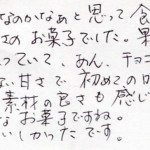 なのかなぁと思って食
さのお菓子でした。果
っていて、あん、チョコ
い甘さで初めての
素材の良さも感じ
なお菓子ですね。
いしかったです。